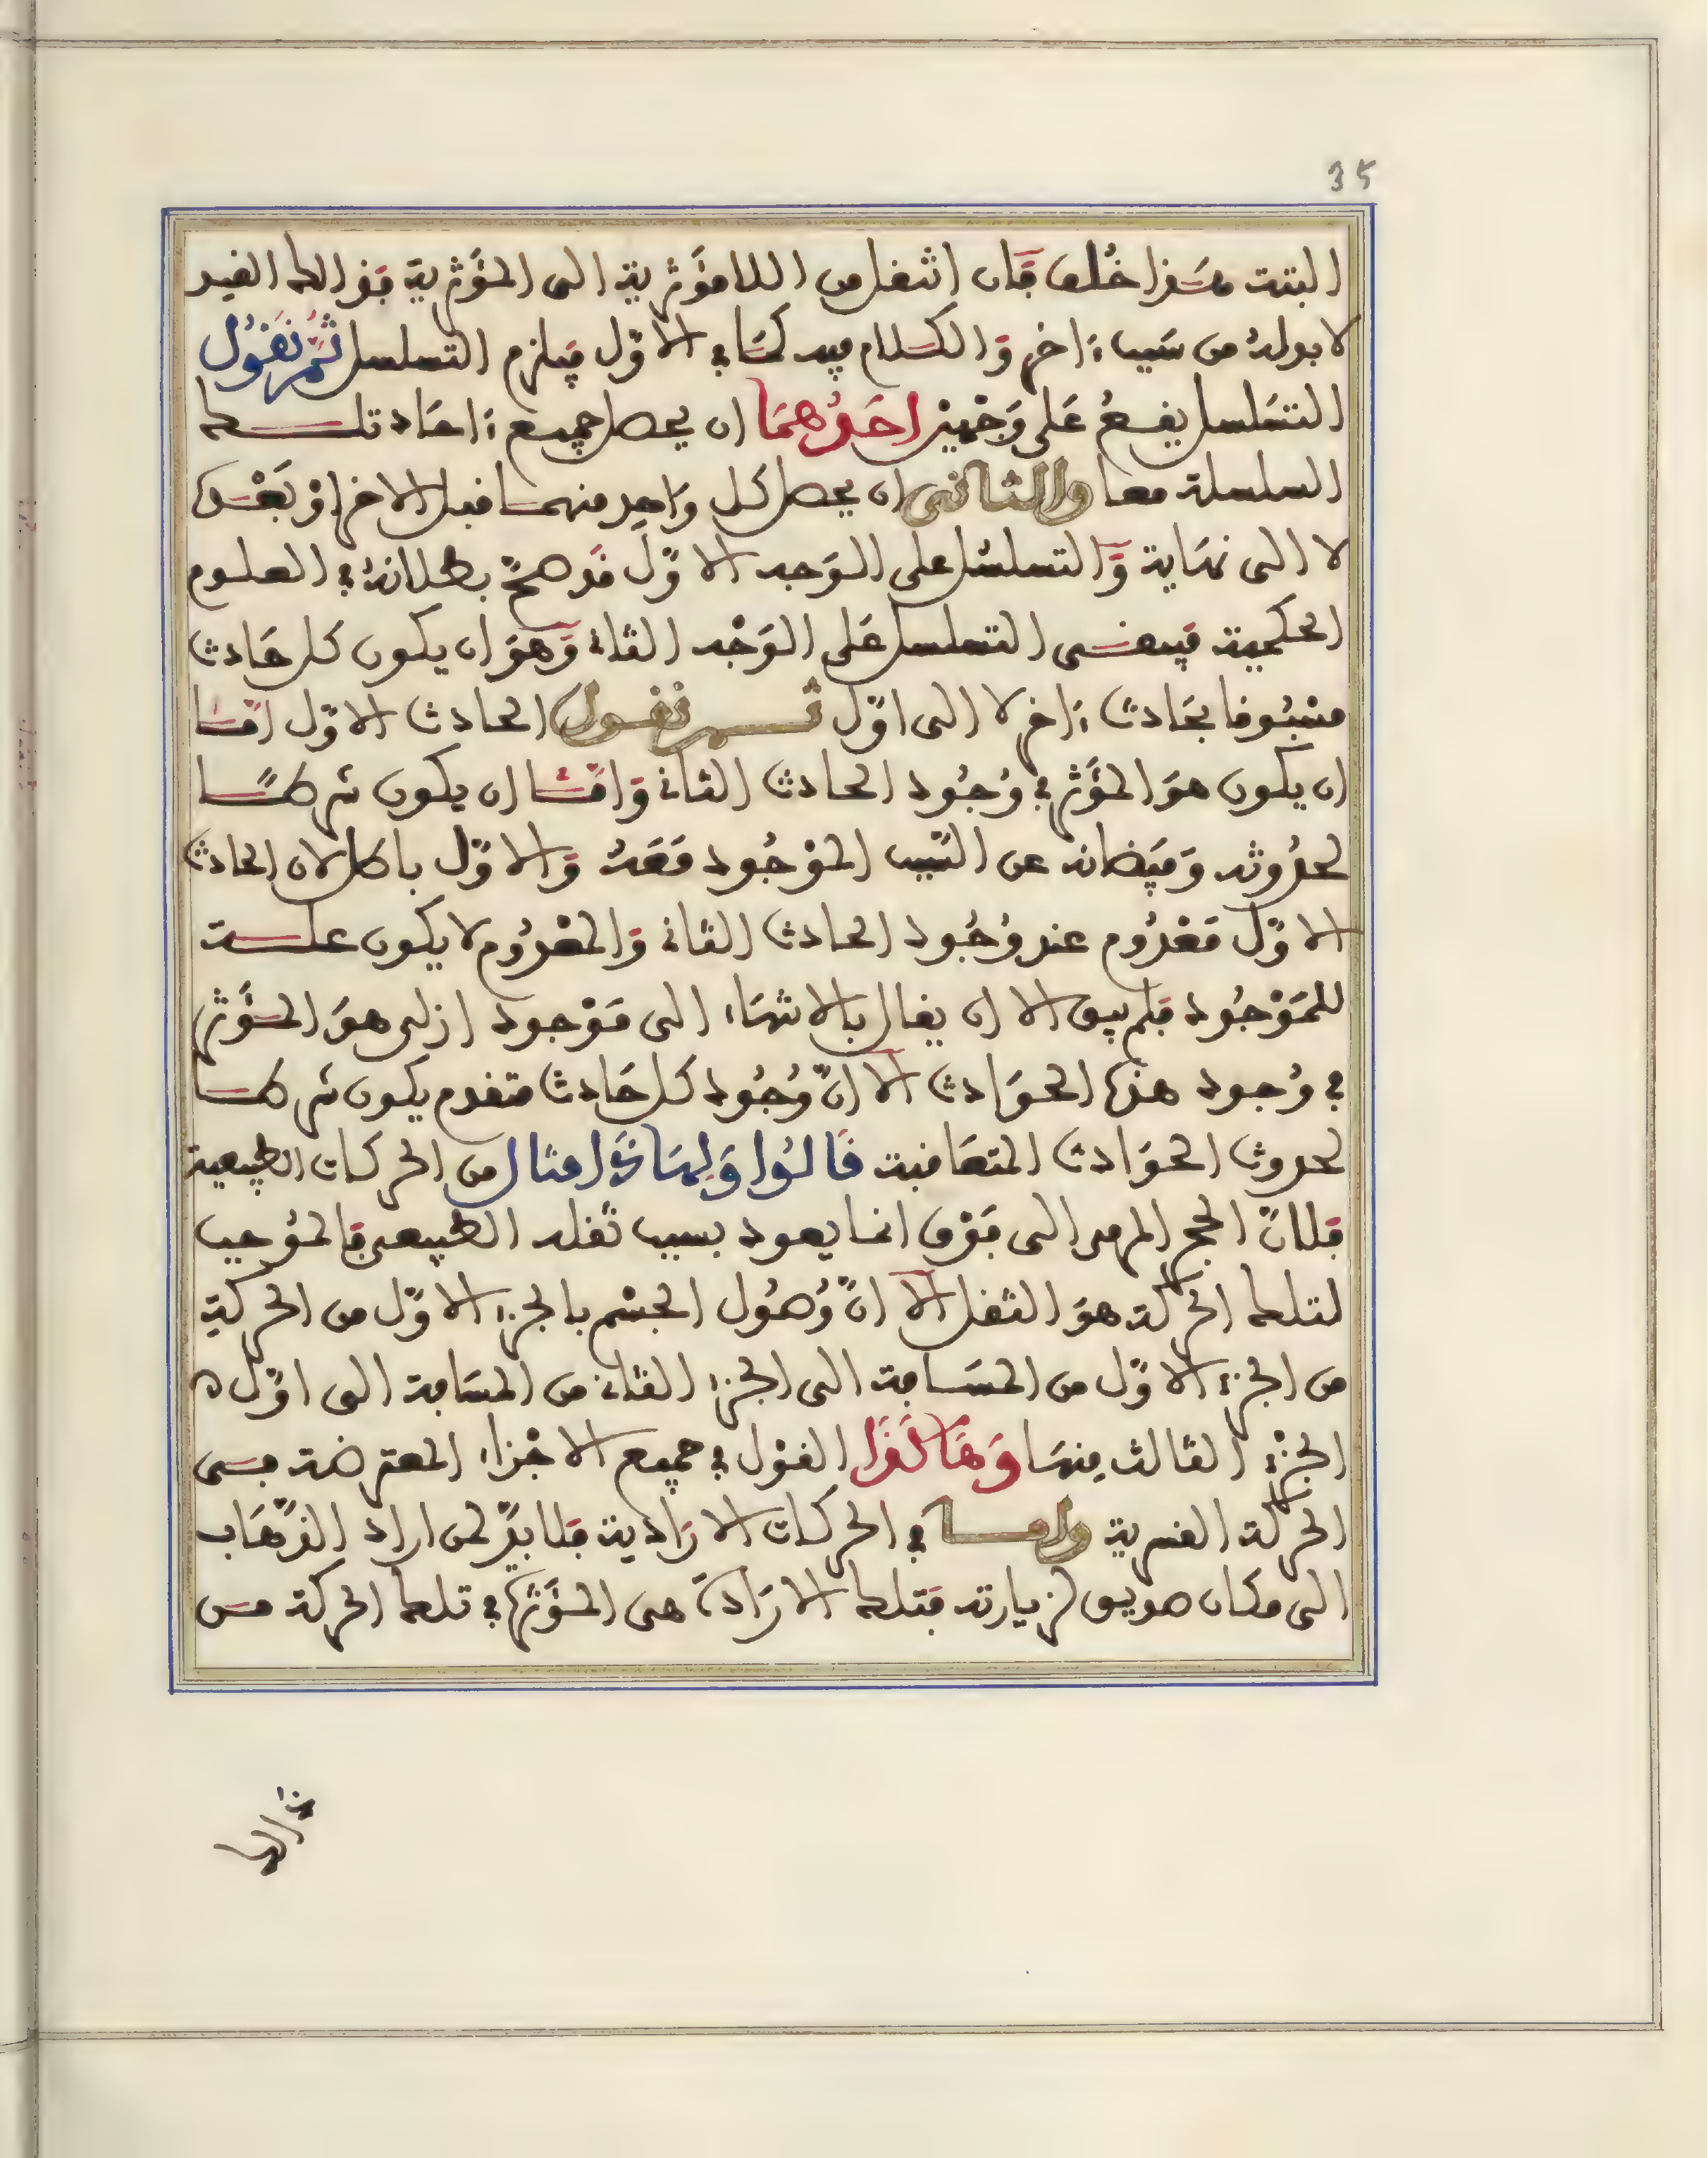 35
البتة هذا خلف فان انتقل من اللامؤثرية الى المؤثرية فذالك القيد
لا بد له من سبب ءاخر والكلام فيه كما في الاول فيلزم التسلسل ثم نقول
التسلسل يقع على وجهين احدهما ان يحصل جميع ءاحاد تلك
السلسلة معا والثانى ان يحصل كل واحد منهما قبل الاخر او بعده
لا الى نهاية والتسلسل على الوجه الاول قد صح بطلانه في العلوم
الحكمية فيبقى التسلسل على الوجه الثاني وهو ان يكون كل حادث
مسبوقا بحادث ءاخر لا الى اول ثم نقول الحادث الاول اما
ان يكون هو المؤثر في وجود الحادث الثاني واما ان يكون شرطا
لحدوثه وفيضانه عن السبب الموجود معه والاول باطل لان الحادث
الاول معدوم عند وجود الحادث الثاني والمعدوم لا يكون علة
للموجود فلم يبق الا ان يقال بالانتهاء الى موجود ازلى هو المؤثر
في وجود هذه الحوادث الا ان وجود كل حادث متقدم يكون شرطا
لحدوث الحوادث المتعاقبة قالوا ولهاذا مثال من الحركات الطبيعية
فلان الحجر المرمى الى فوق انما يعود بسبب ثقله الطبيعى فالموجب
لتلك الحركة هو الثقل الا ان وصول الجسم بالجزء الاول من الحركة
من الجزء الاول من المسافة الى الجزء الثاني من المسافة الى اول ه
الجزء الثالث منها وهاكذا القول في جميع الاجزاء المعترضة فى
الحركة القسرية واما في الحركات الارادية فلا بد لمن اراد الذهاب
الى مكان صديق لزيارته فتلك الارادة هى المؤثرة في تلك الحركة من